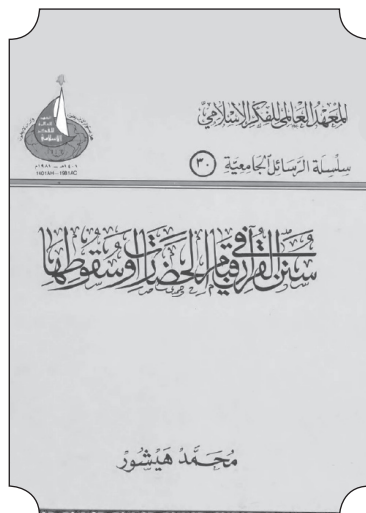 المعهد العالمي للفكر الإسلامي
سلسلة الرسائل الجامعية (٣٠)
١٤٠١هـ - ١٩٨١م
1401AH - 1981AC
سنن القرآن في قيام الحضارات وسقوطها
محمد هيشور